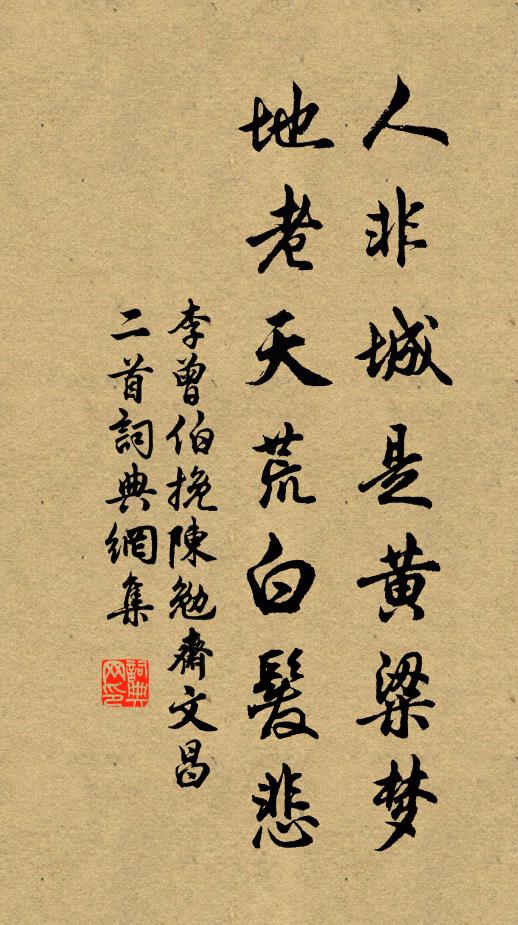 人非城是黄粱梦
地老天荒白髮悲
李曾伯挽陳勉齋文昌
二首詞典網集
詞典
网印